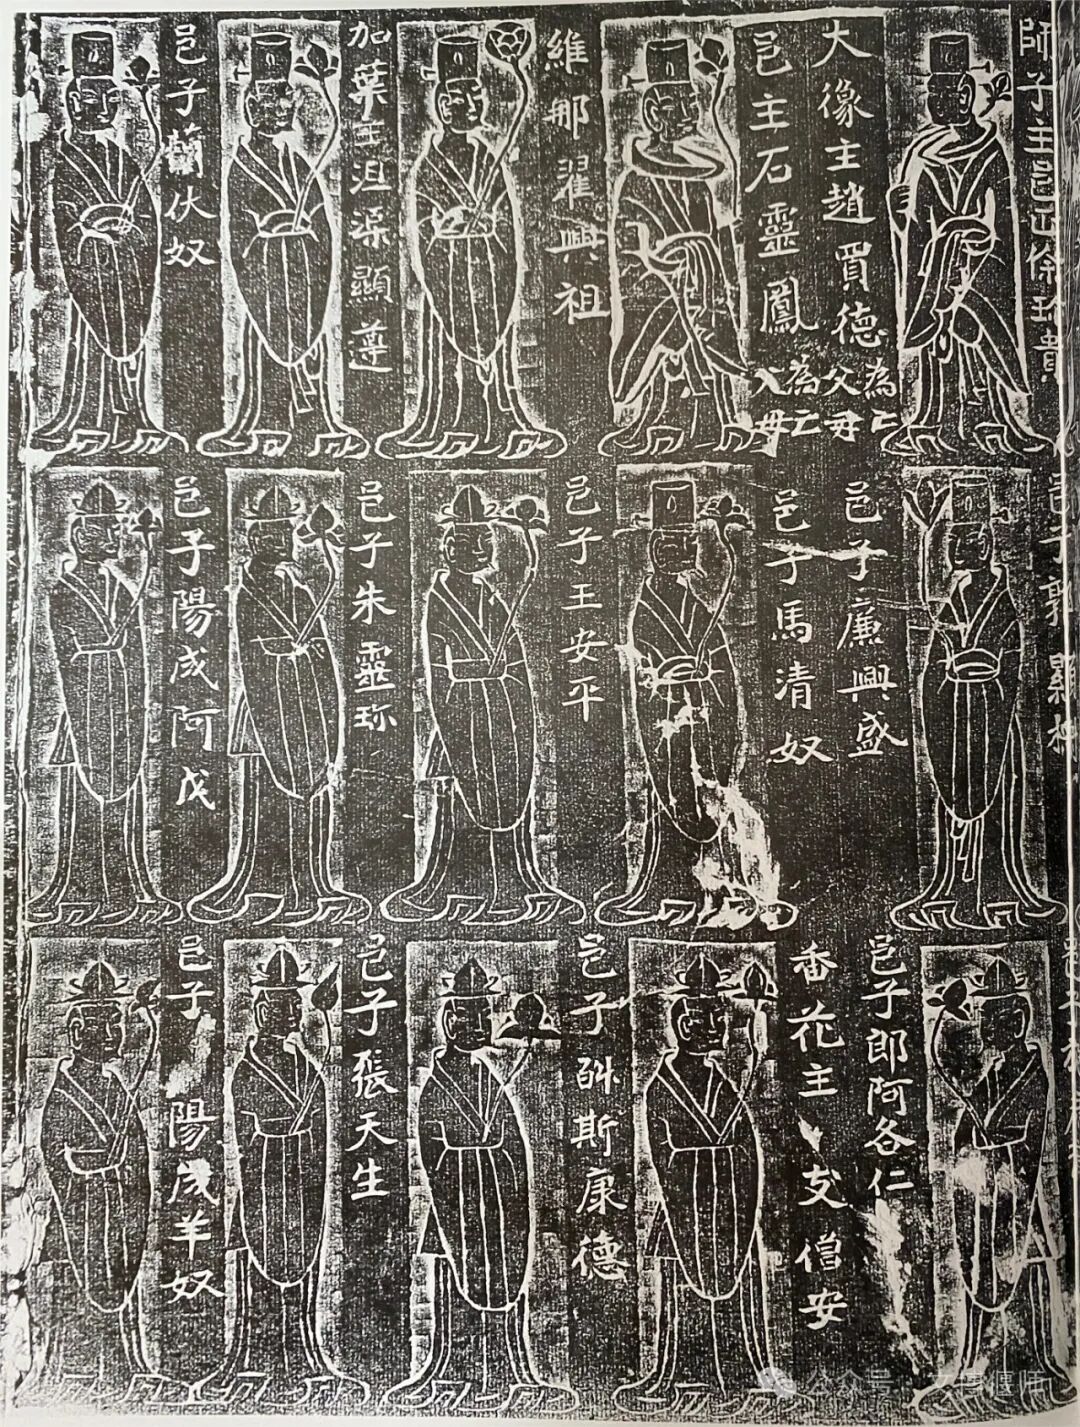 師子主邑正
大像主趙買德為亡父母
邑主石靈鳳為亡父母
維那翟興祖
加葉主沮渠顯遵
邑子蘭伏奴
邑子郭顯
邑子廉興盛
邑子馬清奴
邑子王安平
邑子朱靈珎
邑子陽成阿戊
邑子郎阿各仁
香花主支僧安
邑子斯康德
邑子張天生
邑子陽成羊奴
公众号